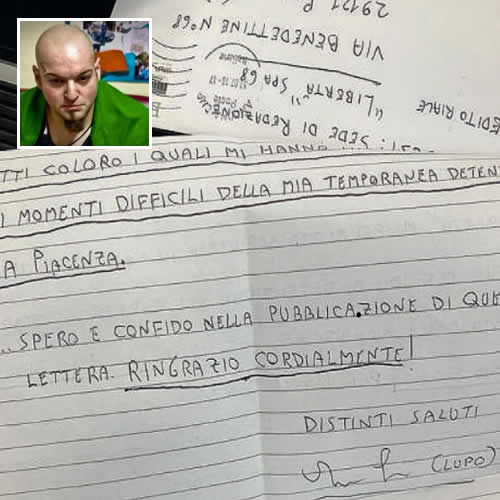 29121 P
VIA BENEDETTINE N°68
"LIBERTÀ" SPA
EDITORIALE
SEDE DI REDAZIONE
TTI COLORO I QUALI MI HANNO
I MOMENTI DIFFICILI DELLA MIA TEMPORANEA DETEN
A PIACENZA.
...SPERO E CONFIDO NELLA PUBBLICAZIONE DI QUE
LETTERA. RINGRAZIO CORDIALMENTE!
DISTINTI SALUTI
(LUPO)